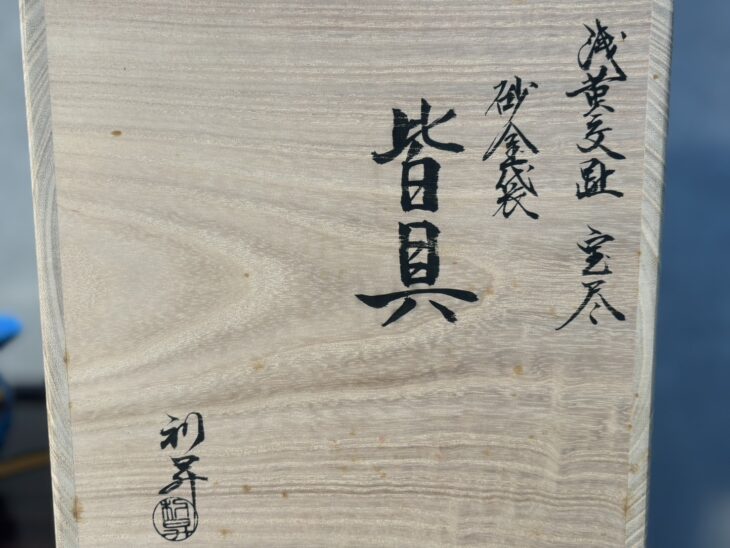 浅黄交趾 宝尽
砂金袋
皆具
利昇